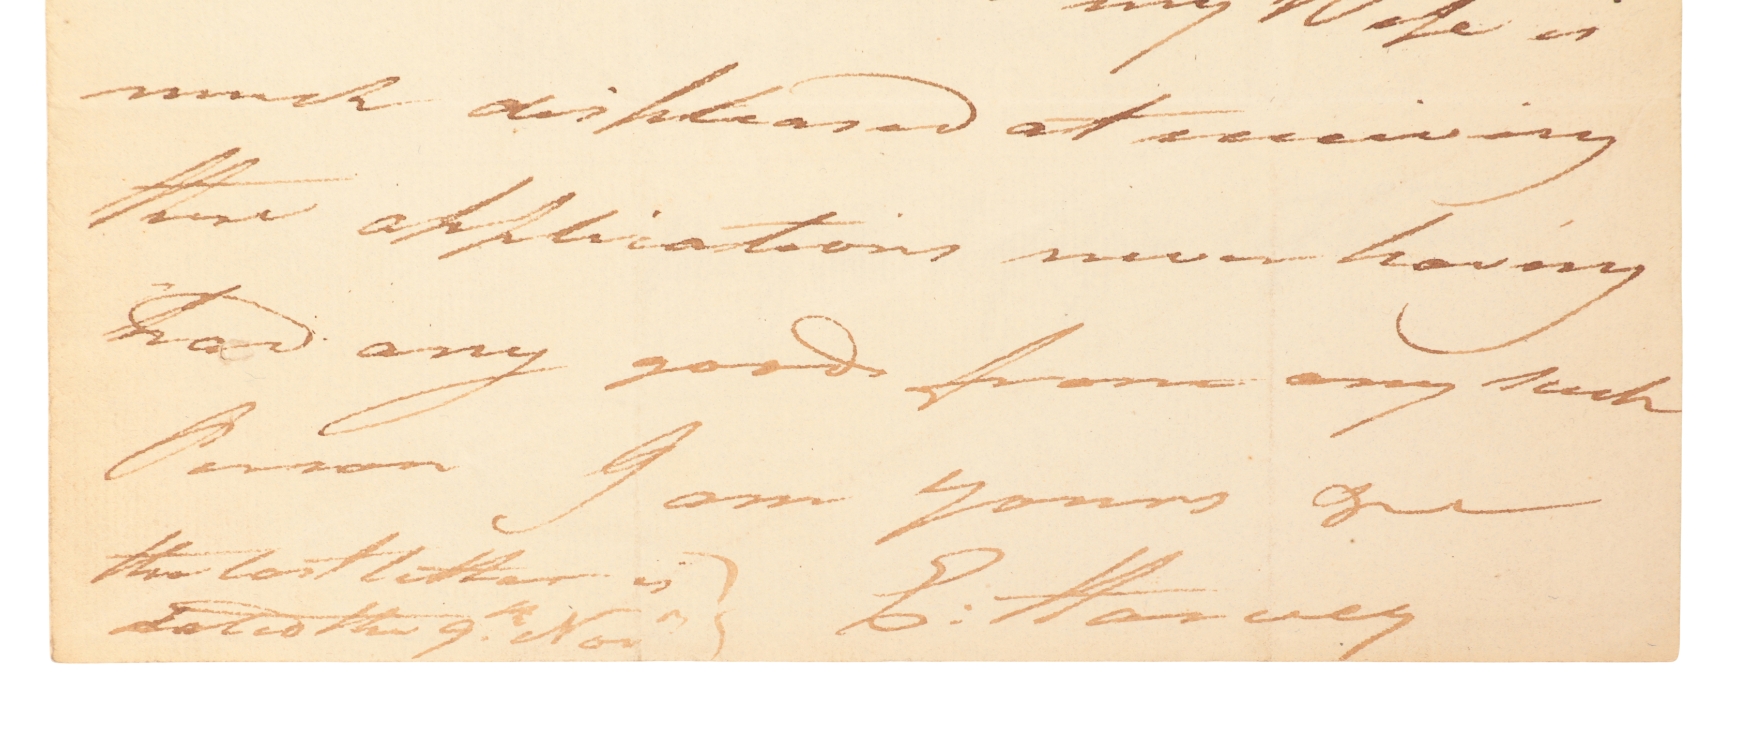 my Wife is
much displeased at receiving
these applications never having
had any goods from any such
Person I am yours &c
the last letter is
dated the 9th. Novr
E: Harvey